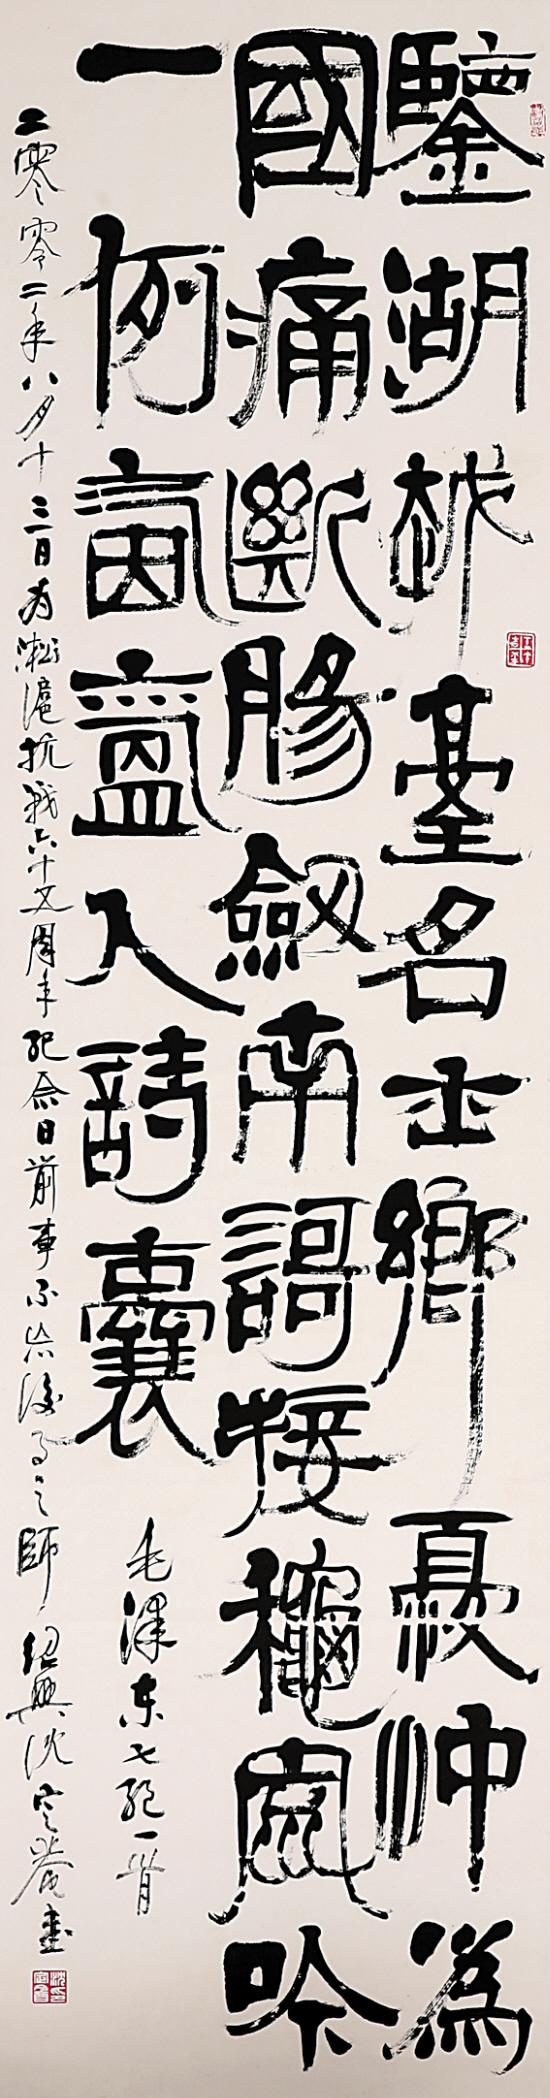 鑒湖越臺名士鄉憂忡為
國痛斷腸劔南謌接龝風吟
一例氤氳入詩囊
毛澤東七絕一首
二零零二年八月十三日為淞滬抗戰六十五周年紀念日前事不忘後事之師紹興沈定菴書